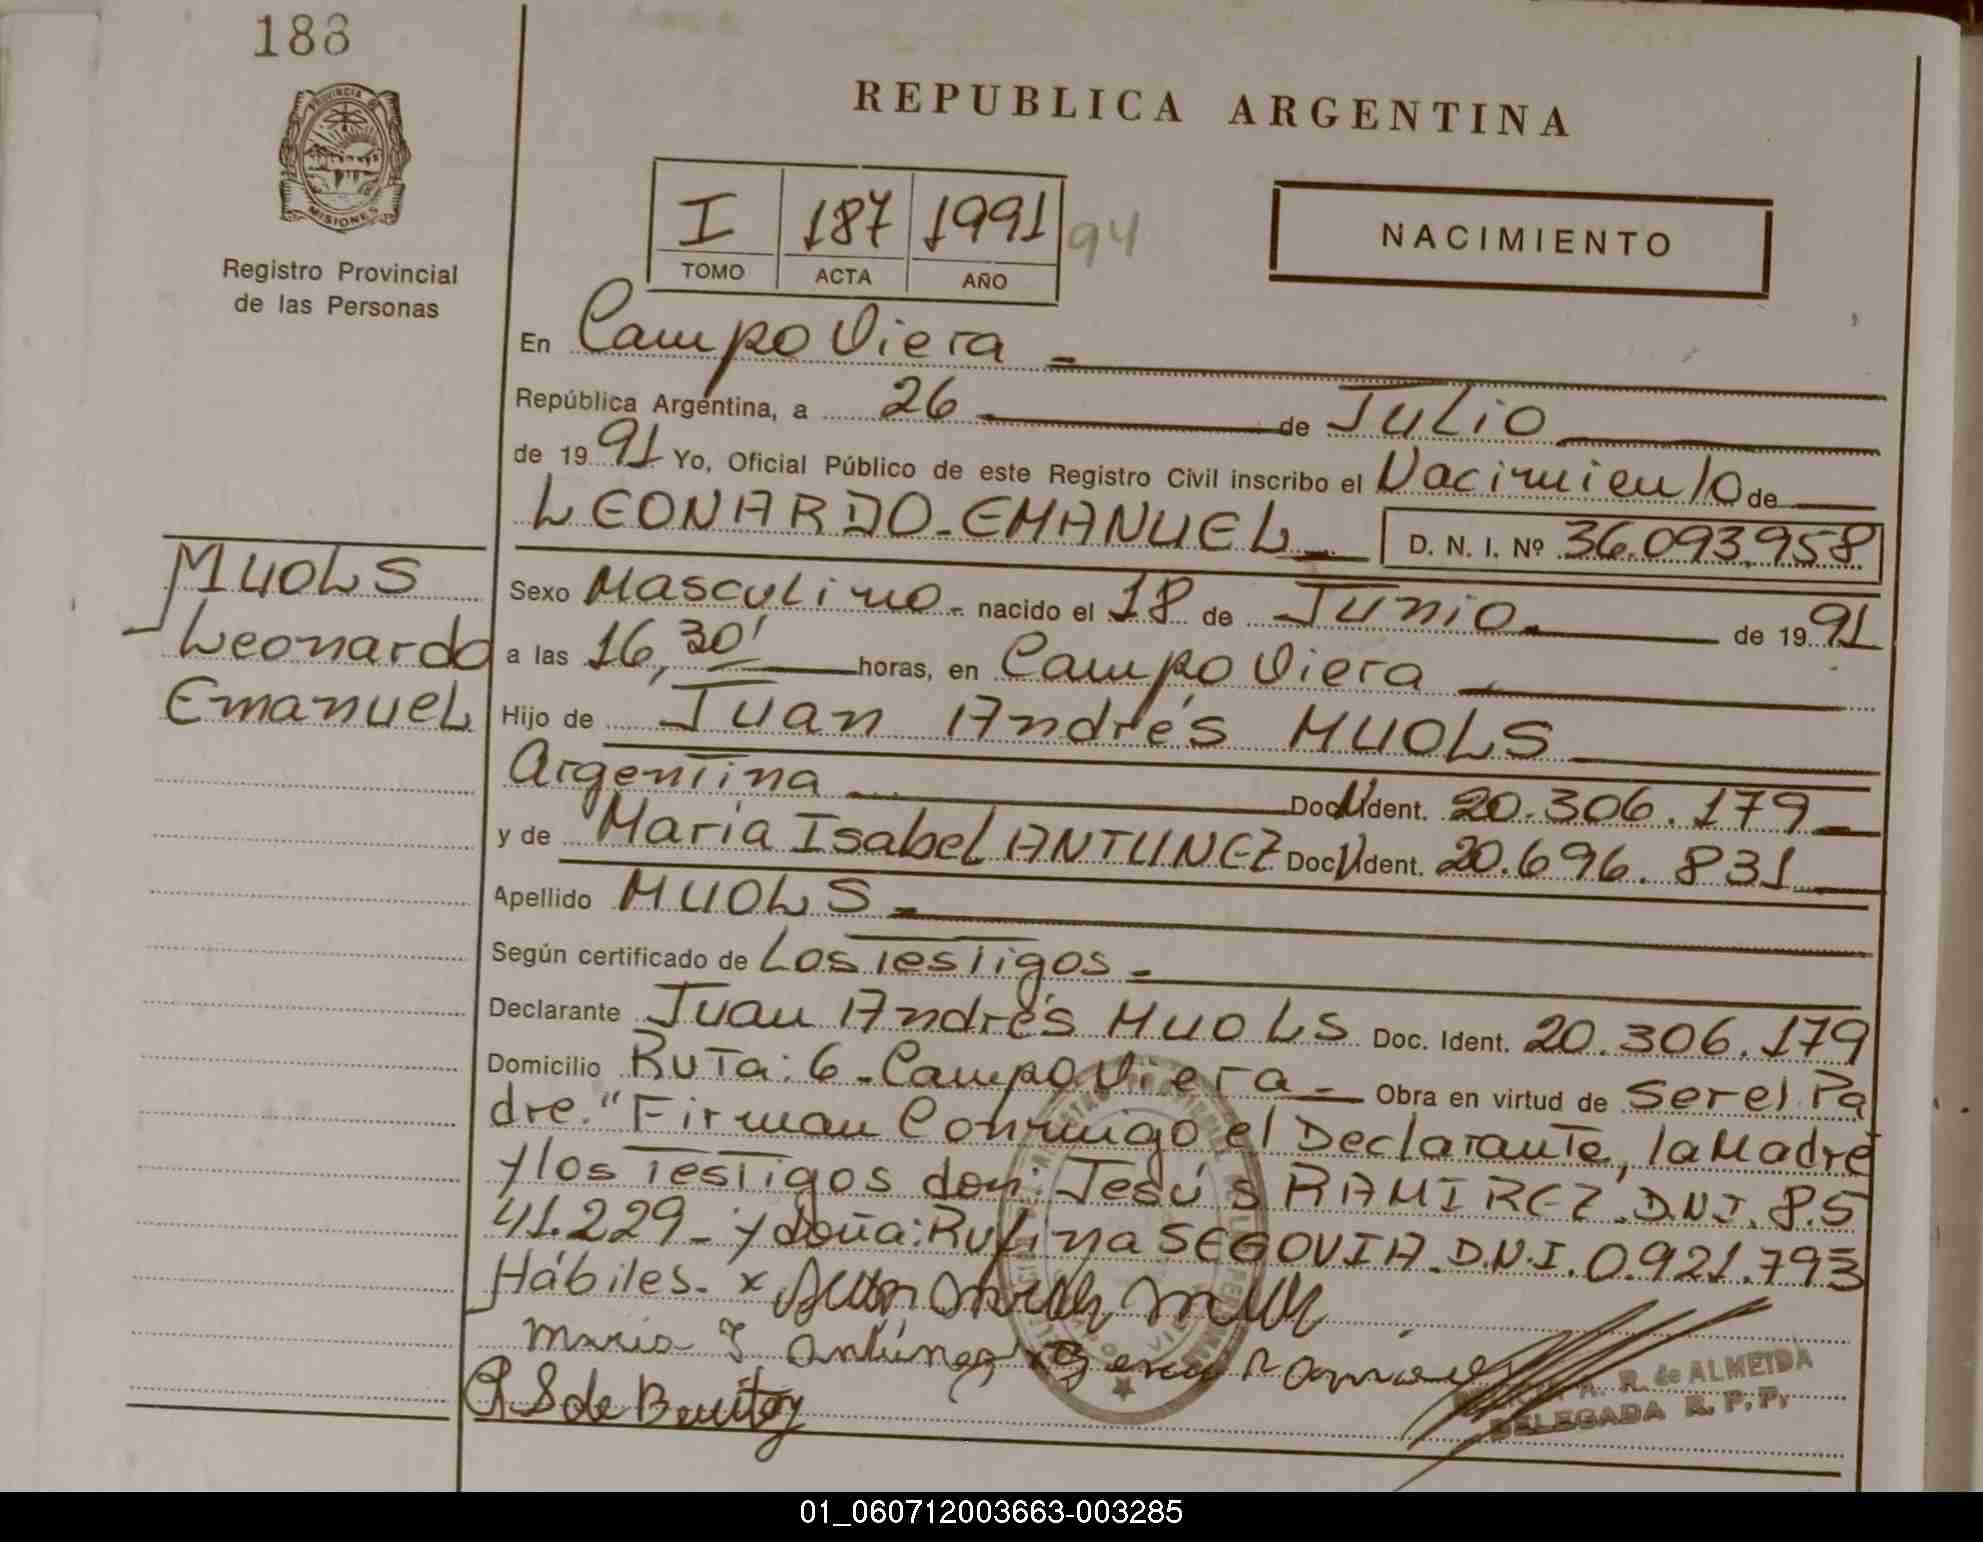 188
PROVINCIA DE
MISIONES
Registro Provincial
de las Personas
REPUBLICA ARGENTINA
I 187 1991 94
TOMO ACTA AÑO
NACIMIENTO
En Campo Viera
República Argentina, a 26 de Julio
de 1991 Yo, Oficial Público de este Registro Civil inscribo el Nacimiento de
LEONARDO-EMANUEL D. N. I. Nº 36.093.958
MUOLS
Leonardo
Emanuel
Sexo Masculino - nacido el 18 de Junio de 1991
a las 16,30' horas, en Campo Viera
Hijo de Juan Andrés MUOLS
Argentina Doc. Ident. 20.306.179
y de María Isabel ANTUNEZ Doc. Ident. 20.696.831
Apellido MUOLS
Según certificado de Los Testigos
Declarante Juan Andrés MUOLS Doc. Ident. 20.306.179
Domicilio Ruta: 6 - Campo Viera - Obra en virtud de ser el Pa
dre." Firman Conmigo el Declarante, la Madre
y los Testigos don: Jesús RAMIREZ D.N.I. 8.5
41.229 - y doña: Rufina SEGOVIA D.N.I. 0.921.793
Hábiles. x Juan
Maria I Antúnez x Ramirez
R S de Benitez
R. de ALMEIDA
DELEGADA R. P. P.
01_060712003663-003285